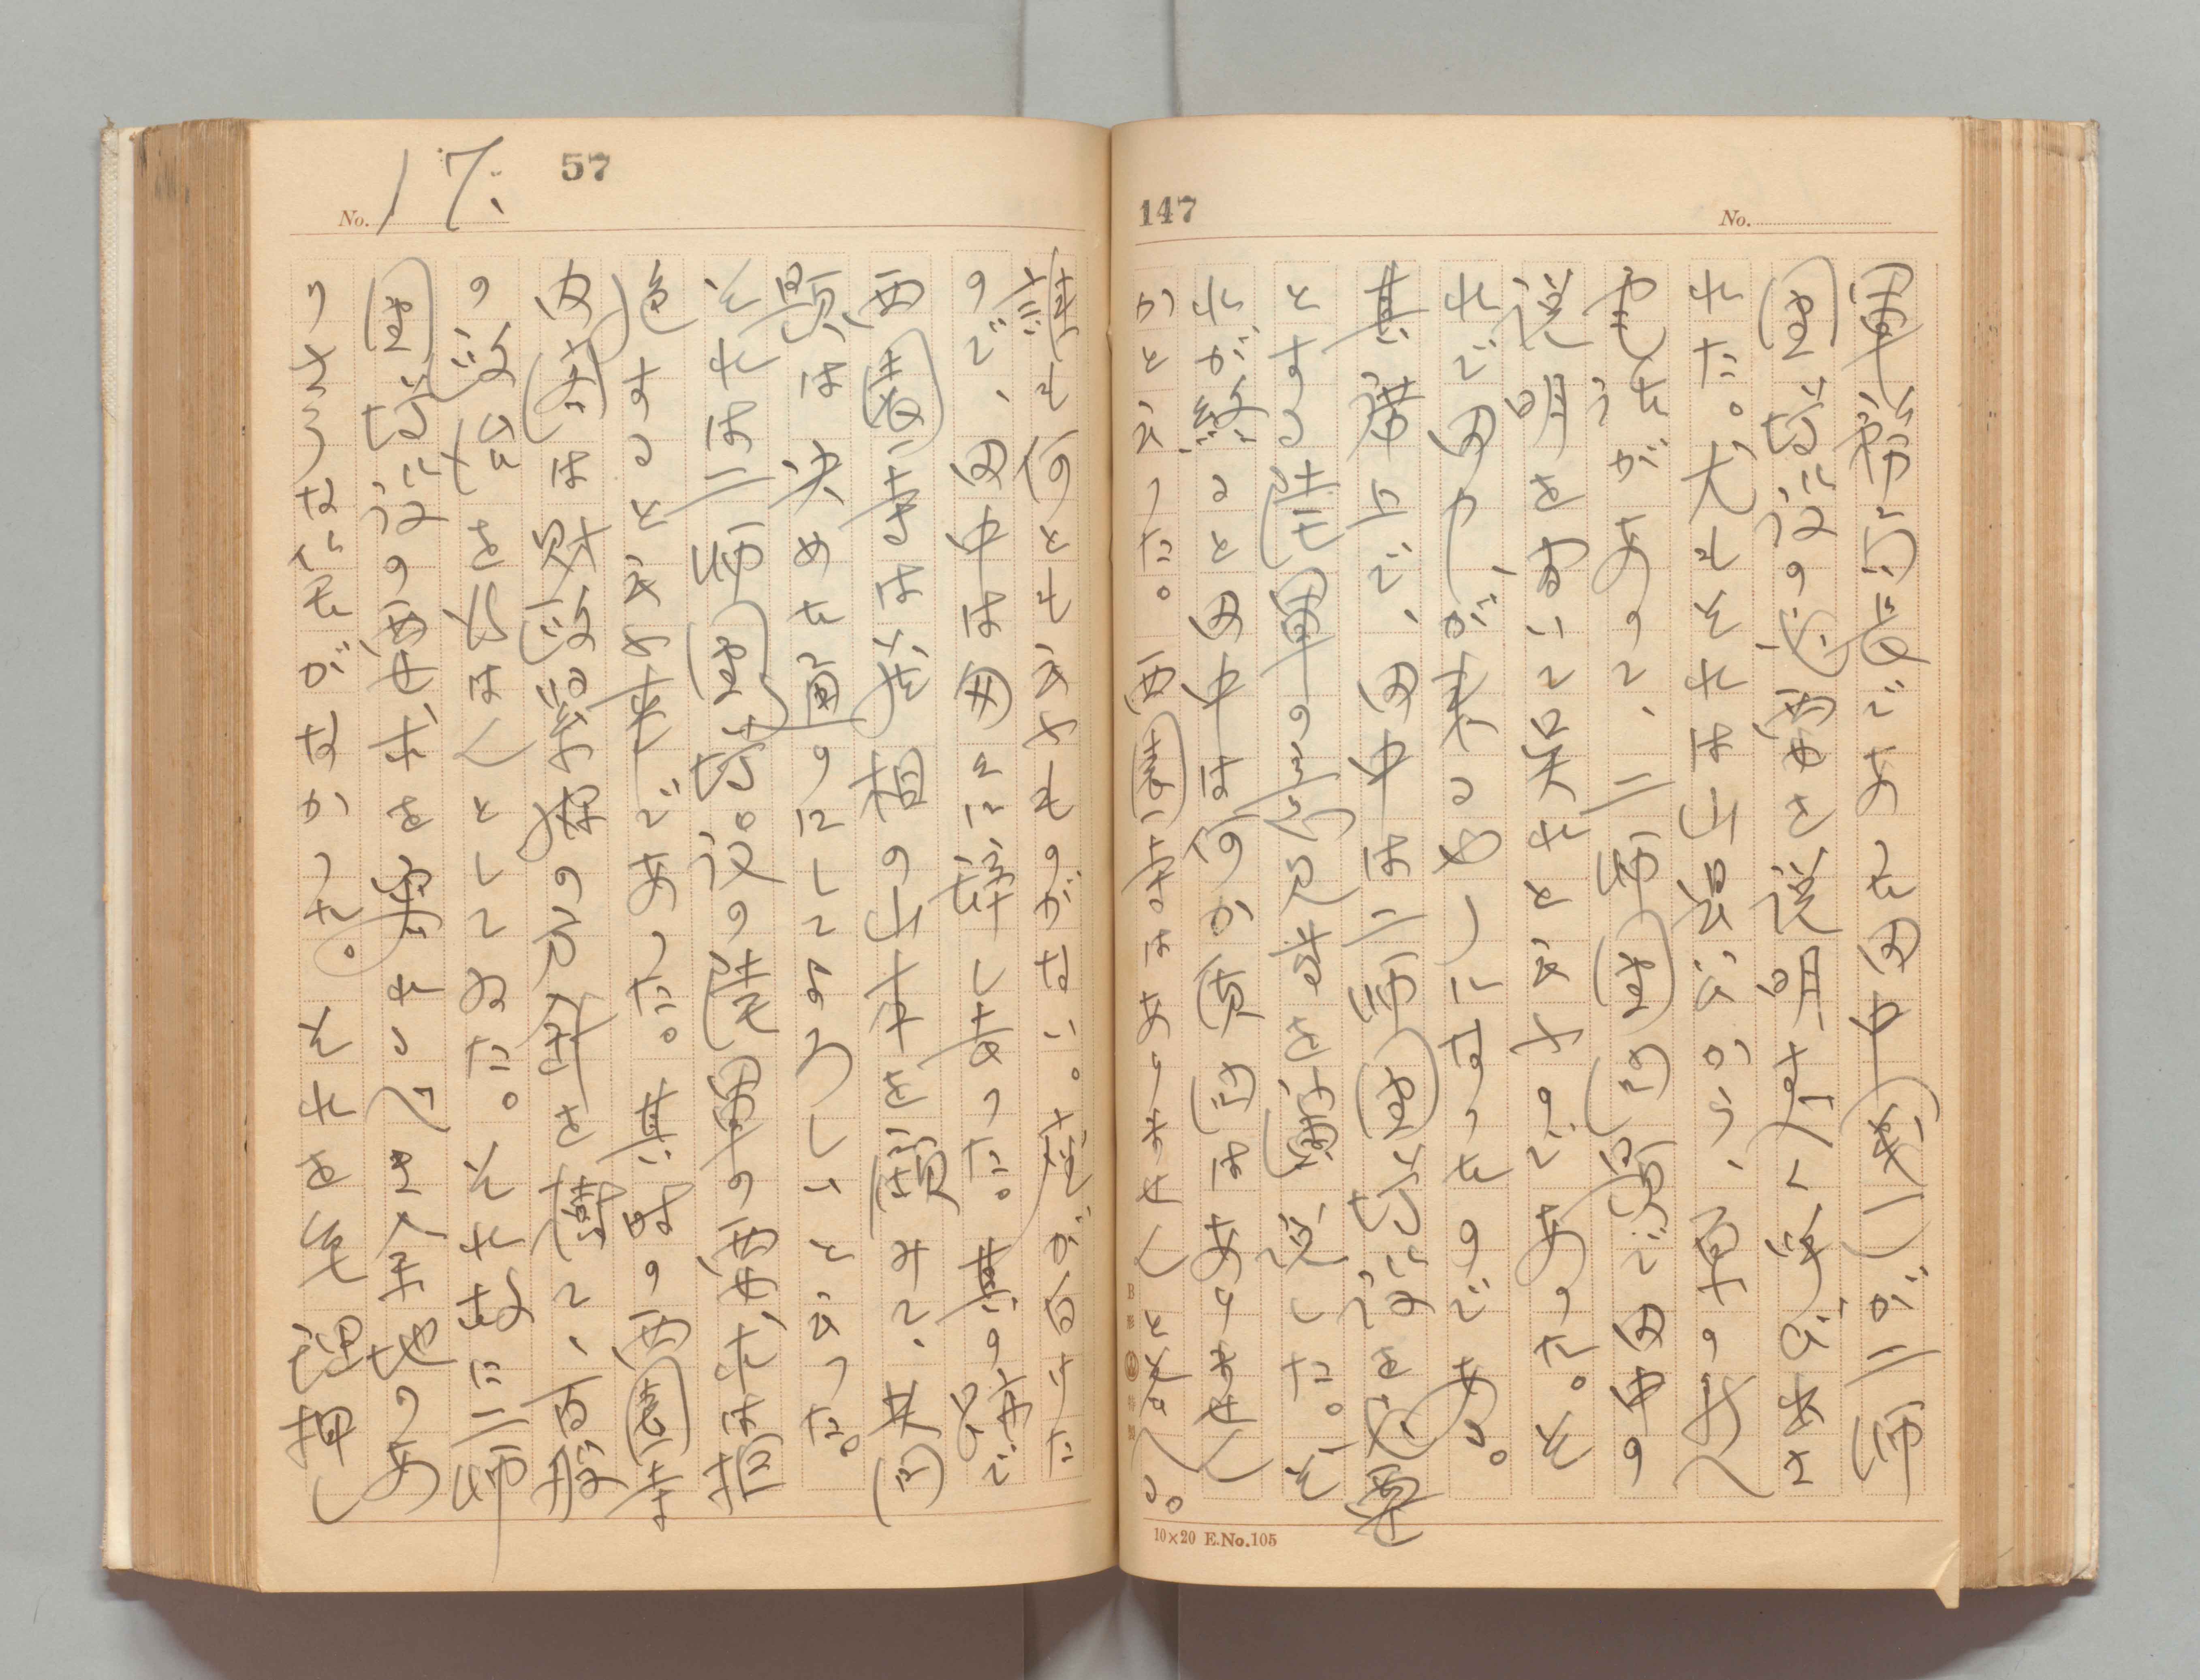 147
No.
軍務局長であった田中(義一)が二師
団増設の必要を説明すべく呼び出さ
れた。尤もそれは山県公から、原の方へ
電話があって、二師団問題で田中の
説明を聞いて呉れと云ふのであった。そ
れで田中が来るやうになったのである。
其席上で、田中は二師団増設を必要
とする陸軍の意見書を説した。そ
れが終ると田中は何か質問はありません
かと云った。西園寺はありませんと答へる。
10×20 E.No.105
57
No. 17.
誰も何とも云ふものがない。座が白けた
ので、田中は匆々に辞し去った。其の席で
西園寺は蔵相の山本を顧みて、其問
題は決めた通りにしてよろしいと云った。
それは二師団増設の陸軍の要求は拒
絶すると云ふ事であった。其時の西園寺
内閣は財政緊縮の方針を樹て、百般
の政治を行はんとしてゐた。それ故に二師
団増設の要求を容るべき余地のあ
りさうな筈がなかった。それを無理押し